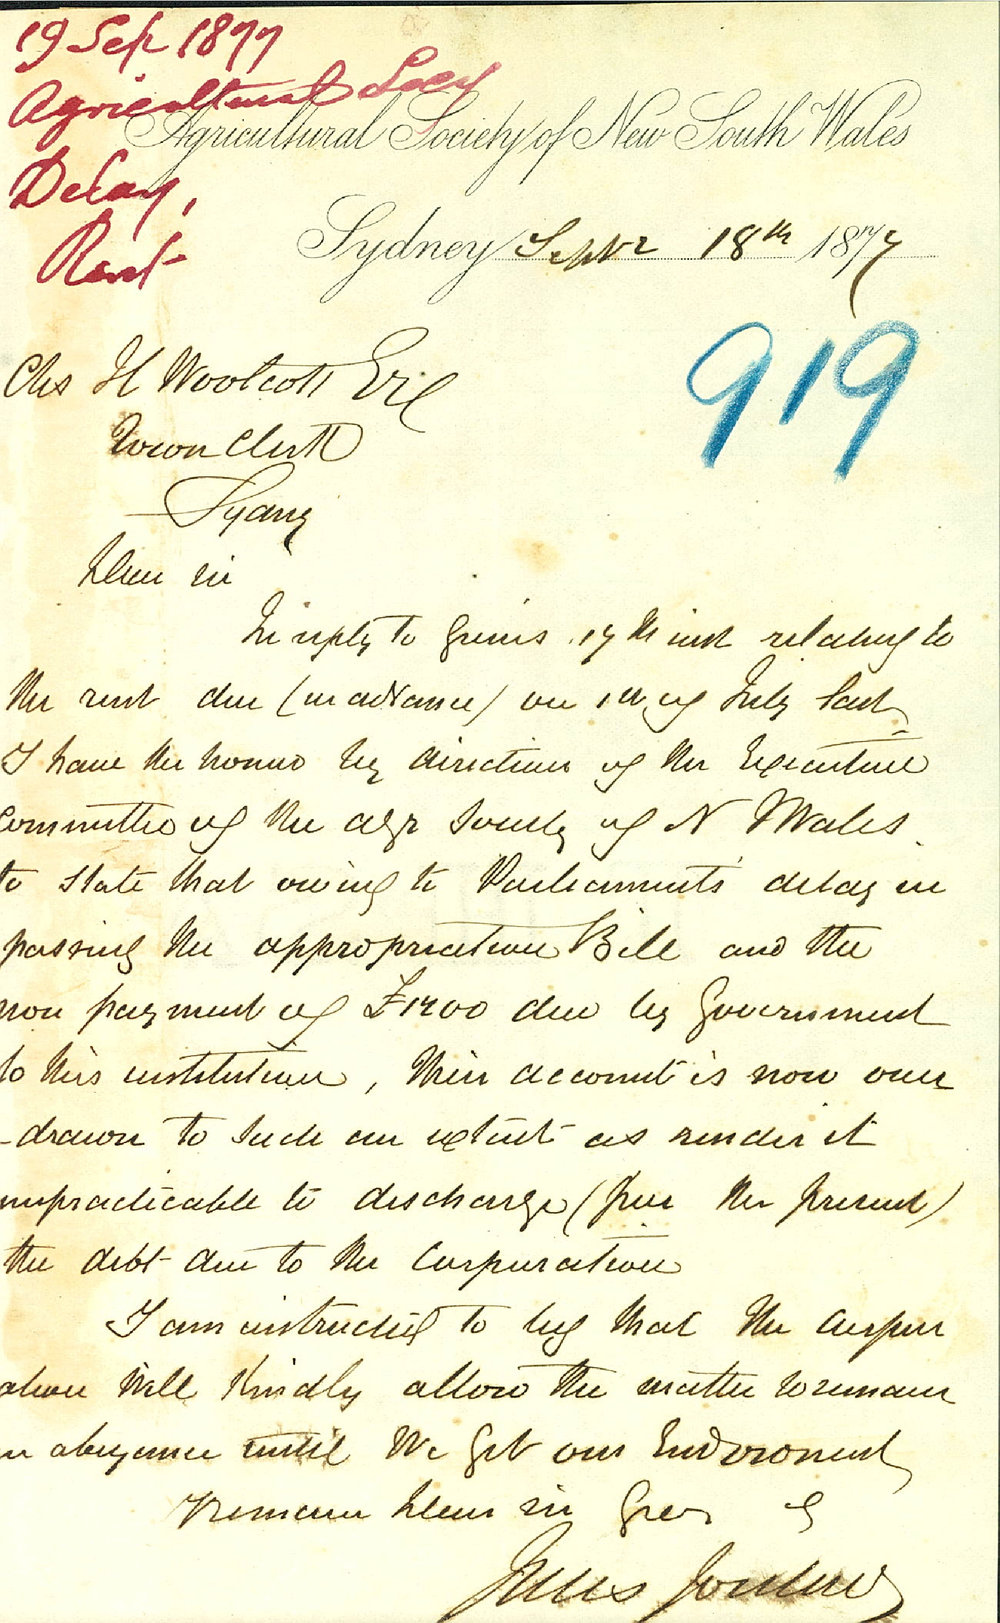 19 Sep 1877
Agricultural Socy
Delay,
Rent
Agricultural Society of New South Wales
Sydney Septr 18th 1877
919
Chs H Woolcott Esq
Town Clerk
Sydney
Dear Sir
In reply to yours 17th inst relating to
the rent due (in advance) on 1st of July last
I have the honor by direction of the Executive
Committee of the Agr Society of N S Wales
to state that owing to Parliaments delay in
passing the appropriation Bill and the
non payment of due by Government
to this institution, their account is now over
-drawn to such an extent as render it
impracticable to discharge (for the present)
the debt due to the Corporation
I am instructed to beg that the Corpor
ation will kindly allow the matter to remain
in abeyance until We get our Endowment
I remain Dear Sir Yrs
Jules Joubert